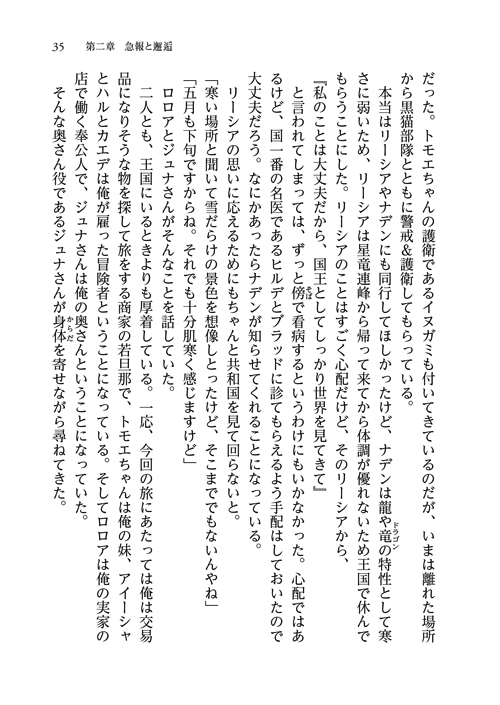 35　第二章　急報と邂逅
だった。トモエちゃんの護衛であるイヌガミも付いてきているのだが、いまは離れた場所
から黒猫部隊とともに警戒＆護衛してもらっている。
　本当はリーシアやナデンにも同行してほしかったけど、ナデンは龍や竜ドラゴンの特性として寒
さに弱いため、リーシアは星竜連峰から帰って来てから体調が優れないため王国で休んで
もらうことにした。リーシアのことはすごく心配だけど、そのリーシアから、
『私のことは大丈夫だから、国王としてしっかり世界を見てきて』
　と言われてしまっては、ずっと傍そばで看病するというわけにもいかなかった。心配ではあ
るけど、国一番の名医であるヒルデとブラッドに診てもらえるよう手配はしておいたので
大丈夫だろう。なにかあったらナデンが知らせてくれることになっている。
　リーシアの思いに応えるためにもちゃんと共和国を見て回らないと。
「寒い場所と聞いて雪だらけの景色を想像しとったけど、そこまででもないんやね」
「五月も下旬ですからね。それでも十分肌寒く感じますけど」
　ロロアとジュナさんがそんなことを話していた。
　二人とも、王国にいるときよりも厚着している。一応、今回の旅にあたっては俺は交易
品になりそうな物を探して旅をする商家の若旦那で、トモエちゃんは俺の妹、アイーシャ
とハルとカエデは俺が雇った冒険者ということになっている。そしてロロアは俺の実家の
店で働く奉公人で、ジュナさんは俺の奥さんということになっていた。
　そんな奥さん役であるジュナさんが身体からだを寄せながら尋ねてきた。